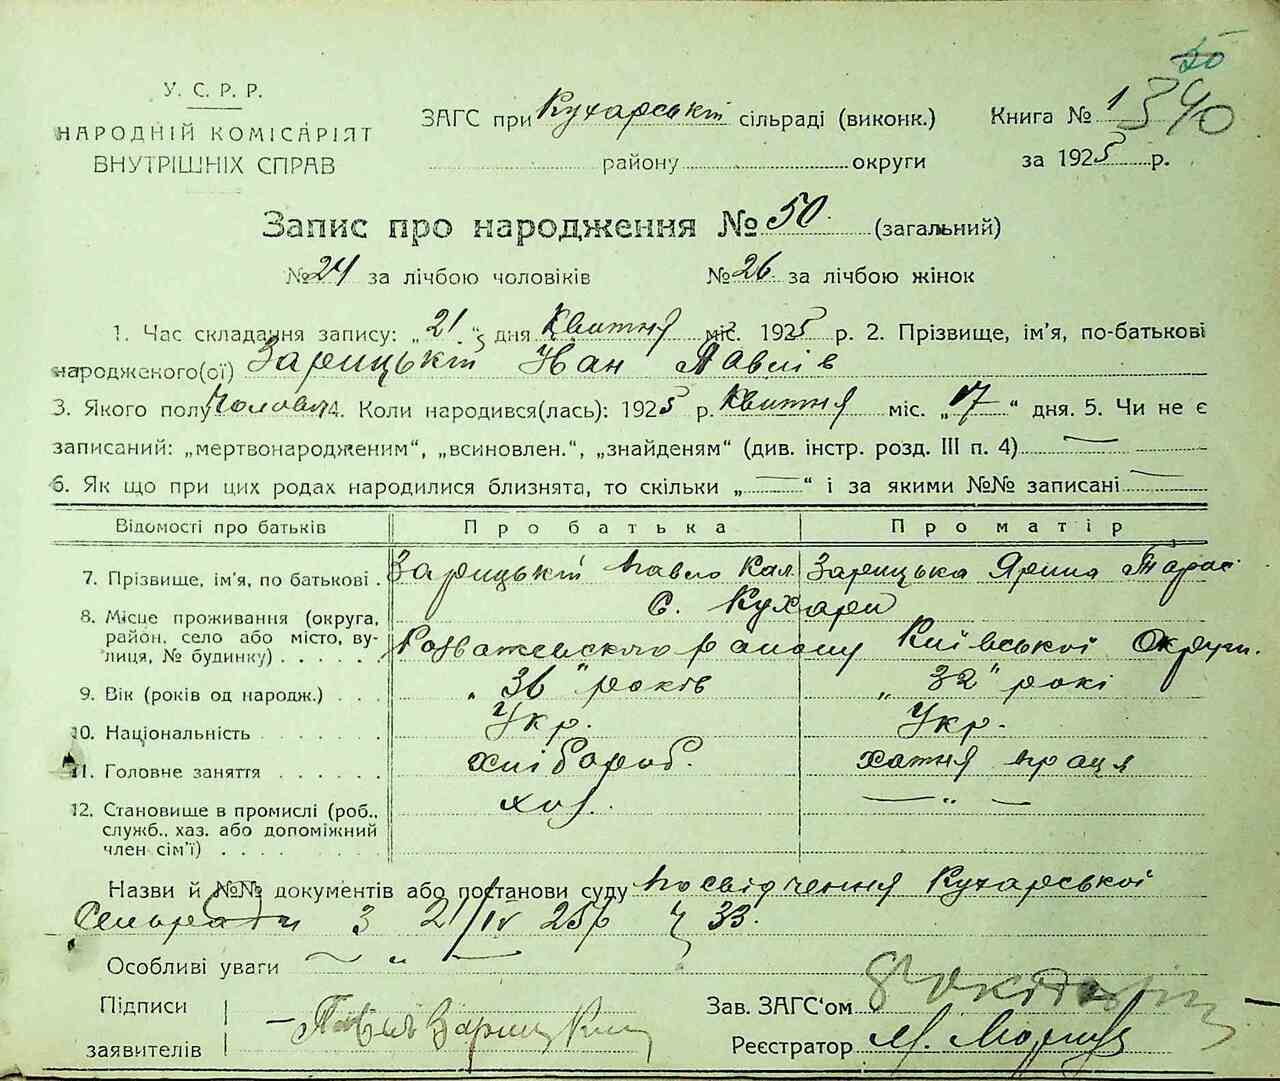 50
340
У. С. Р. Р.
НАРОДНІЙ КОМІСАРІЯТ
ВНУТРІШНІХ СПРАВ
ЗАГС при Кухарській сільраді (виконк.)
району округи
Книга № 1
за 1925 р.
Запис про народження № 50 (загальний)
№ 24 за лічбою чоловіків № 26 за лічбою жінок
1. Час складання запису: „21“ дня Квітня міс. 1925 р. 2. Прізвище, ім'я, по-батькові
народженого(ої) Зарицький Іван Павлів
3. Якого полу Чолов 4. Коли народився(лась): 1925 р. Квітня міс. „17“ дня. 5. Чи не є
записаний: „мертвонародженим“, „всиновлен.“, „знайденям“ (див. інстр. розд. III п. 4) —
6. Як що при цих родах народилися близнята, то скільки „—“ і за якими №№ записані —
Відомості про батьків Про батька Про матір
7. Прізвище, ім'я, по батькові . Зарицький Павло Кал. Зарицька Ярина Тарас
с. Кухари
8. Місце проживання (округа,
район, село або місто, ву-
лиця, № будинку) . . . . . Розважевского району Київської Округи.
9. Вік (років од народж.) . . . „36“ років „32“ рокі
10. Національність . . . . . . . Укр. Укр.
11. Головне заняття . . . . . . хлібороб. хатня праця
12. Становище в промислі (роб., хоз. — „ —
служб., хаз. або допоміжний
член сім'ї) . . . .
Назви й №№ документів або постанови суду Посвідчення Кухарської
Сельради З 21/IV 25р ч 33.
Особливі уваги — „ —
Підписи
заявителів
Павел Зарицкий
Зав. ЗАГС'ом
Реєстратор М.